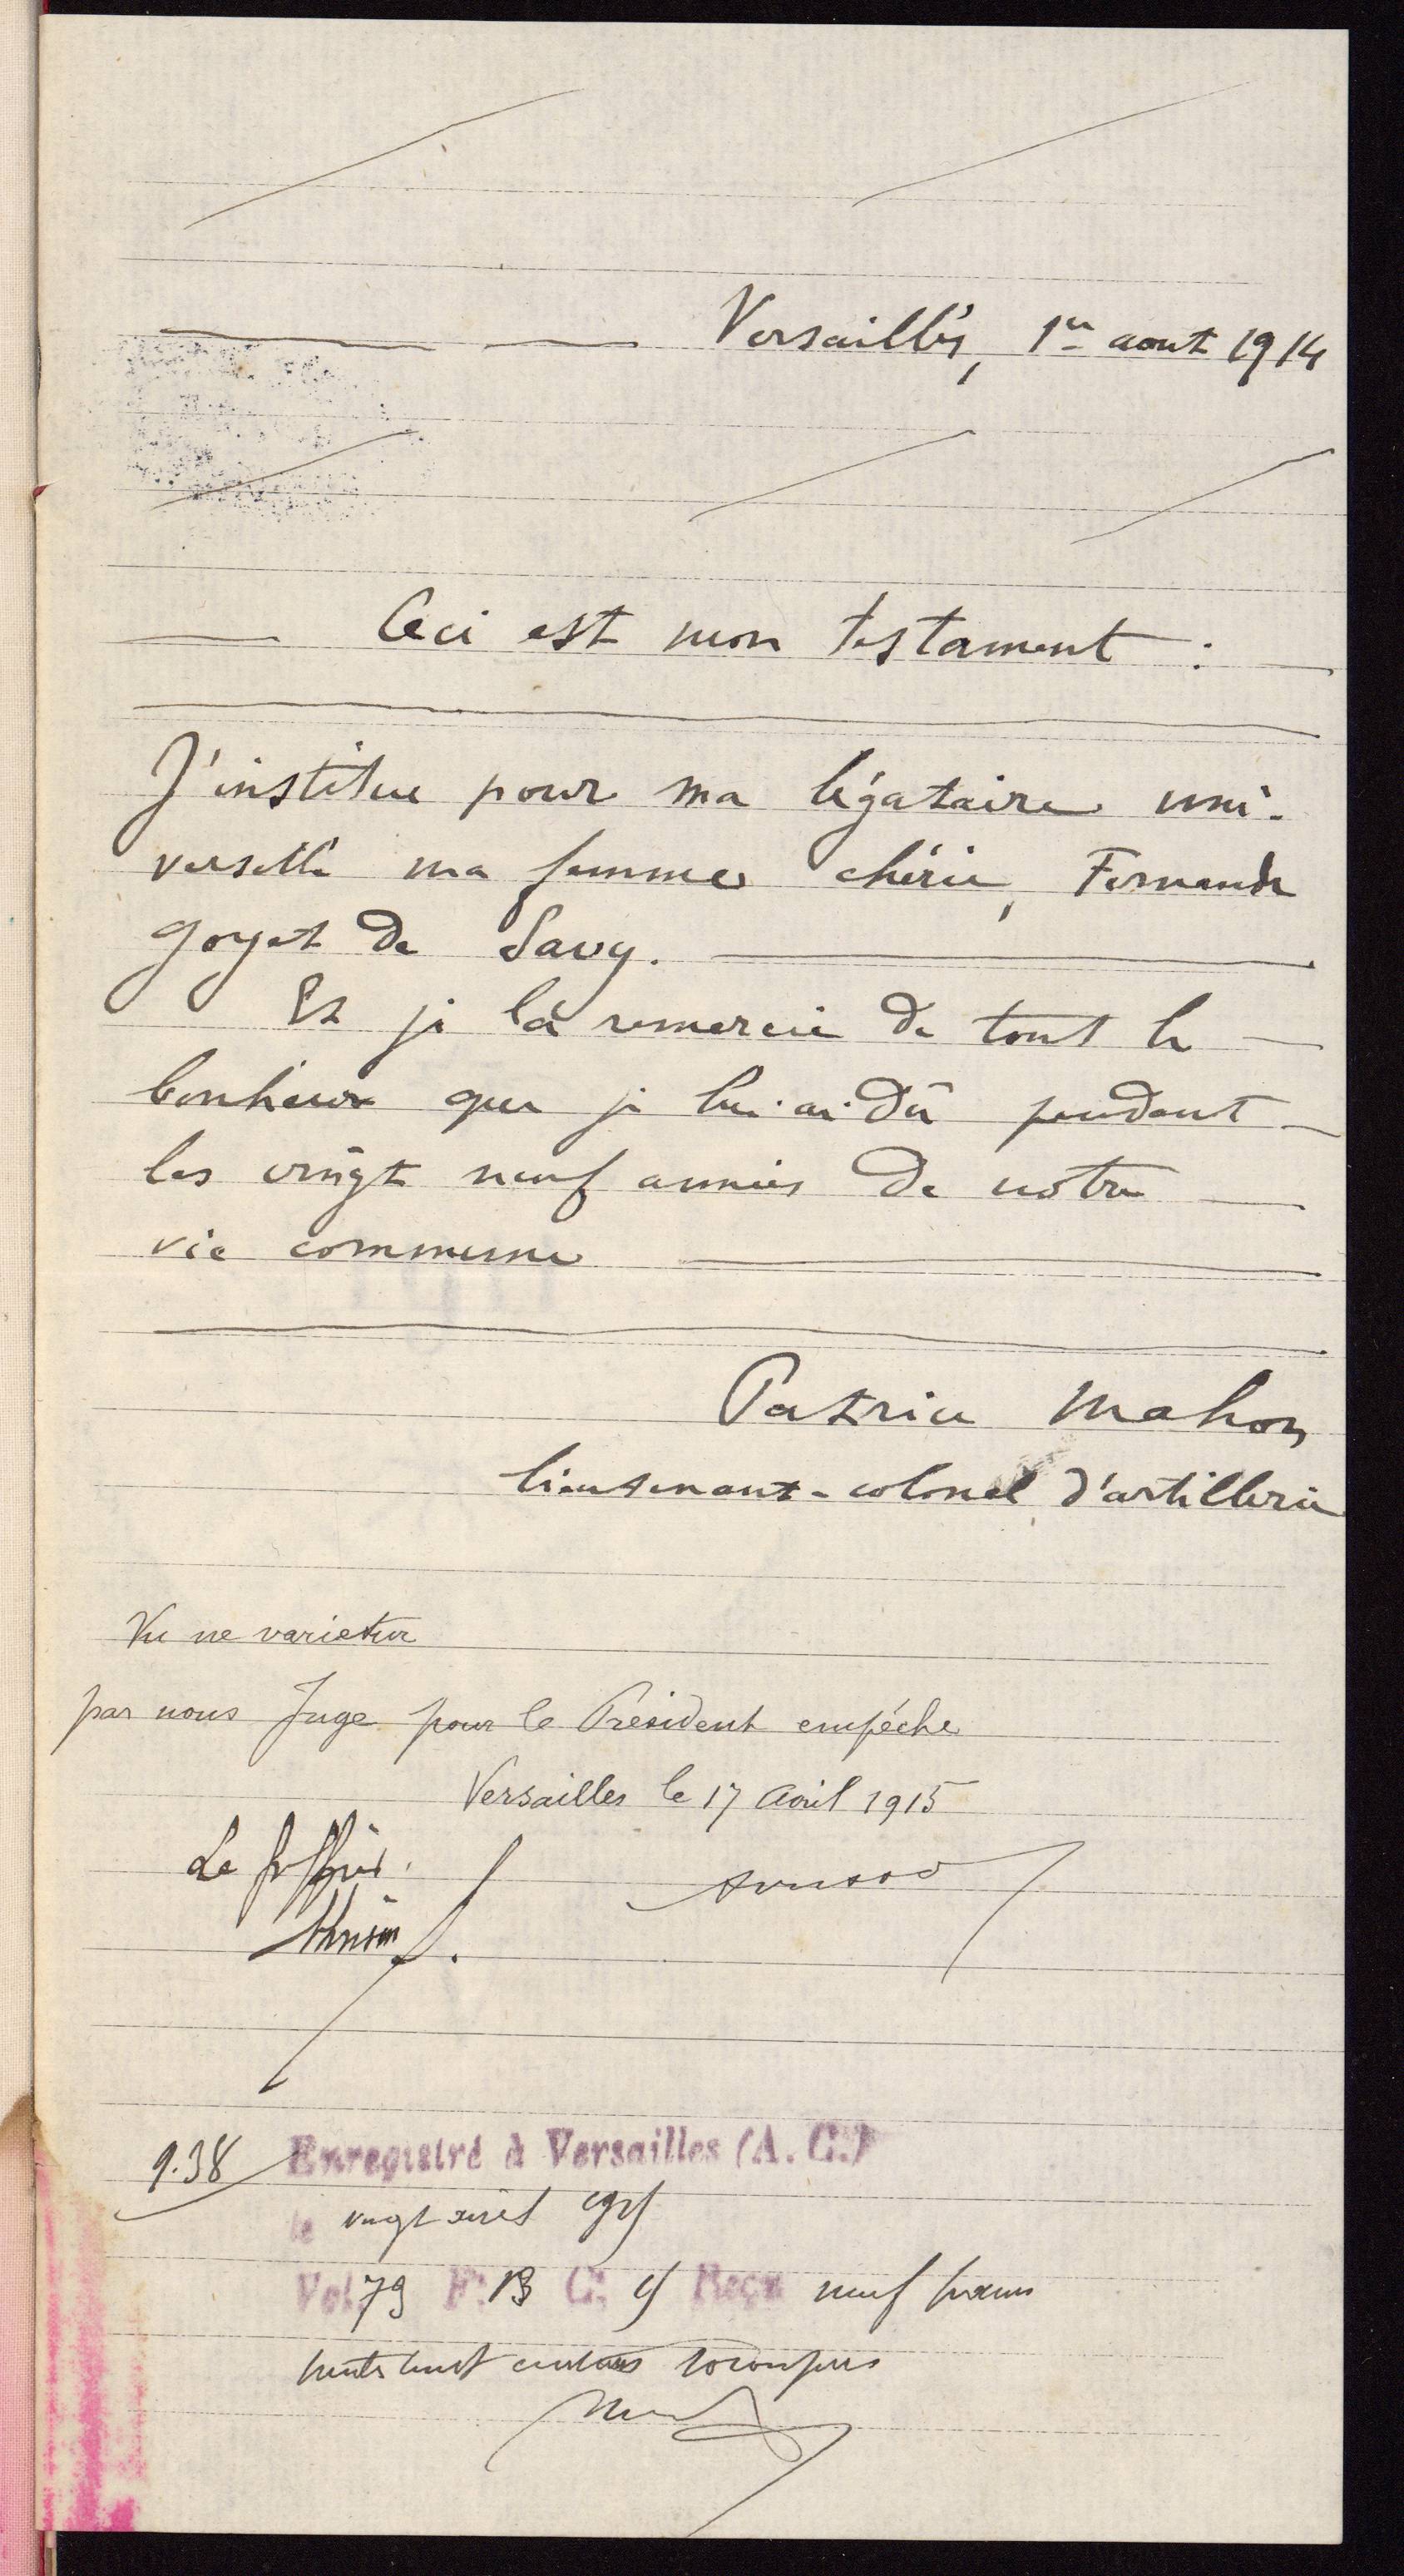 Versailles, 1er aout 1914
Ceci est mon testament :
J'institue pour ma légataire uni-
verselle ma femme chérie, Fernande
Goyet de Savy.
Et je la remercie de tout le
bonheur que je lui ai dû pendant
les vingt neuf années de notre
vie commune
Patrice Mahon
lieutenant-colonel d'artillerie
Vu ne varietur
par nous Juge pour le Président empéché
Versailles le 17 Avril 1915
Le Greffier.
9.38 Enregistré à Versailles (A.C.)
le vingt avril
Vol. 79 F° 13 C. Reçu neuf francs
trente huit centimes